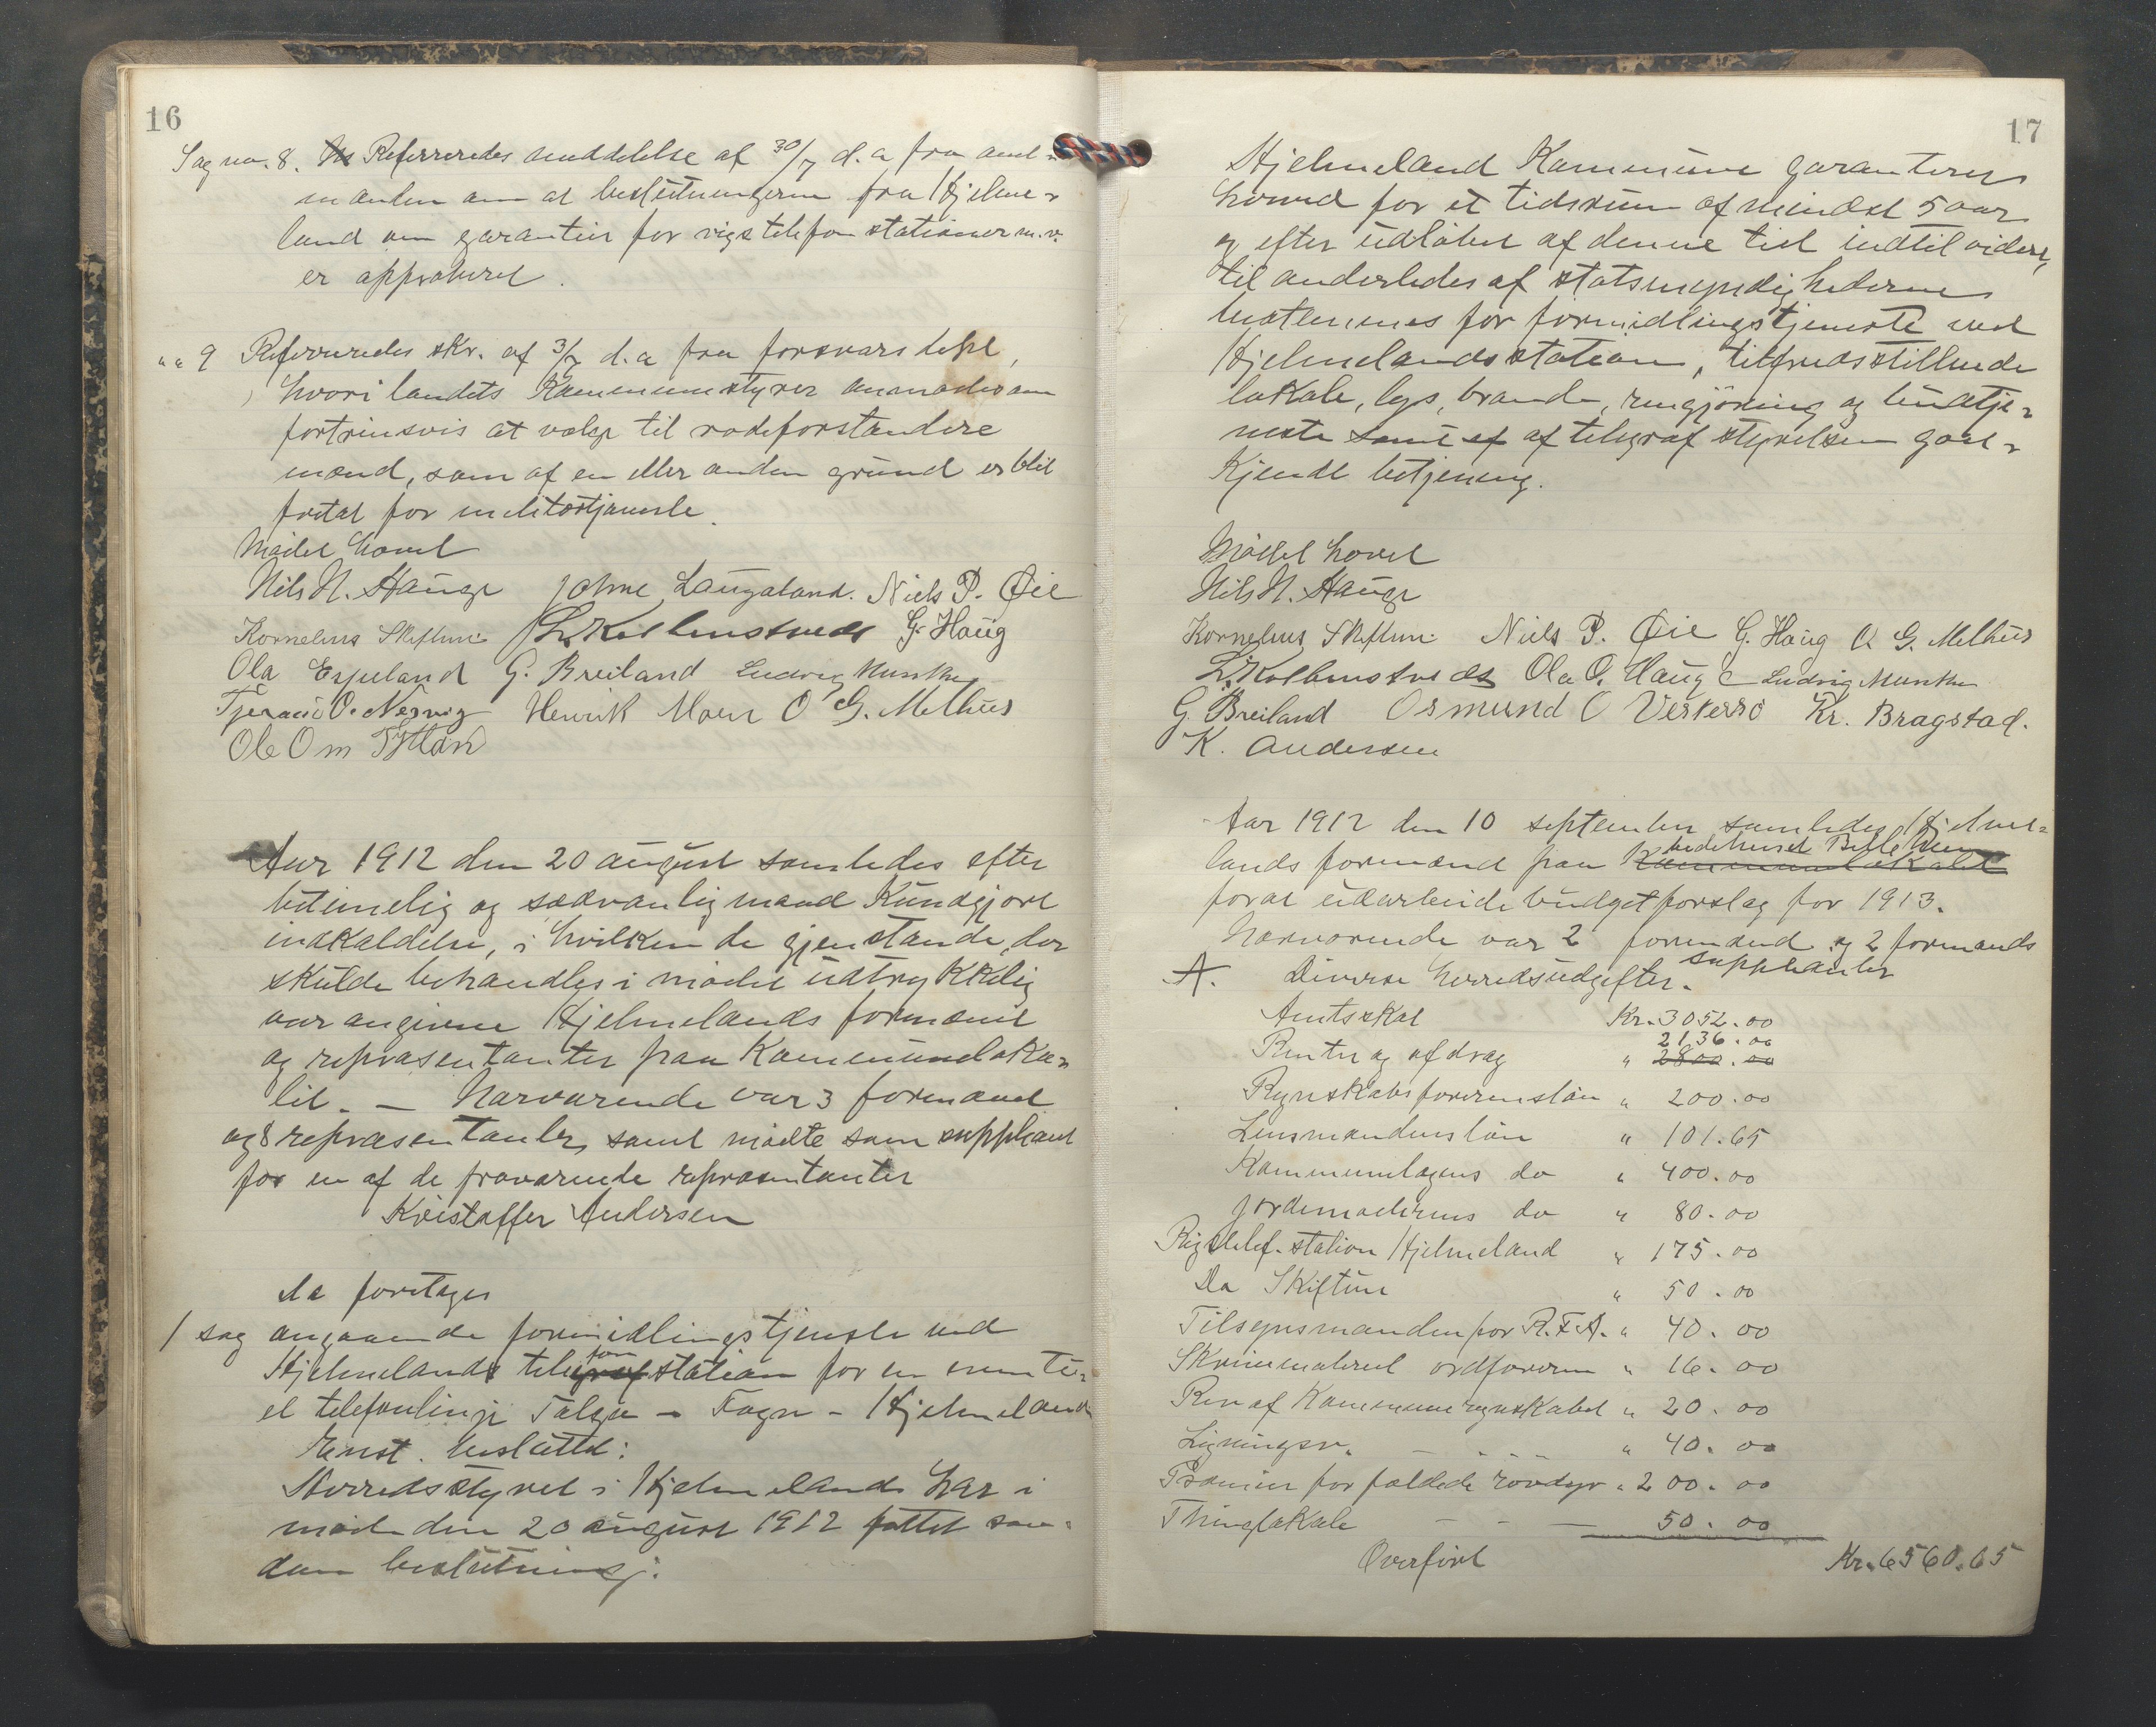 16
Sag no. 8. Referreredes meddelelse af 30/7 d.a fra amt-
manden om at beslutningerne fra Hjelme-
land om garantier for rigstelefonstationer m.v.
er approberet.
" " 9 Refereredes skr. af 3/7 d.a fra forsvarsdept,
hvori landets Kommunestyrer anmodes om
fortrinsvis at vælge til rodeforstandere
mænd, som af en eller anden grund er blit
fritat for militærtjeneste.
Mødet hævet
Nils N. Hauge Johne Laugaland. Niels P. Øie
Kornelius Skiftun L. Kolbenstvedt G. Haug
Ola Espeland G. Breiland Ludvig Munke
O. Nesvig Henrik Moen O G. Melhus
Ole Om
Aar 1912 den 20 august samledes efter
betimelig og sædvanlig maade Kundgjort
indkaldelse, i hvilken de gjenstande, der
skulde behandles i mødet udtrykkelig
var angivne Hjelmelands formænd
og repræsentanter paa Kommuneloka-
let. — Nærværende var 3 formænd
og 8 repræsentanter, samt mødte som suppleant
for en af de fraværende repræsentanter
Kristoffer Andersen
Da foretages
1 sag angaaende formidlingstjeneste ved
Hjelmelands telegrafstation for en eventu-
fon
el telefonlinje Talgø – Fogn – Hjelmeland
Enst. besluttet:
Herredsstyret i Hjelmeland har i
møde den 20 august 1912 fattet saa-
dan beslutning:
17
Hjelmeland Kommune garanterer
herved for et tidsrum af mindst 5 aar
og efter udløbet af denne tid indtil videre,
til anderledes af statsmyndighederne
bestemmes for formidlingstjeneste ved
Hjelmelands station, tilfredsstillende
lokale, lys, brænde, rengjøring og budtje-
neste samt ef af telegrafstyrelsen god-
Kjendt betjening.
Mødet hævet
Nils N. Hauge
Kornelius Skiftun Niels P. Øie G. Haug O G. Melhus
L. Kolbenstvedt Ola O. Hauge Ludvig Munke
G. Breiland Osmund O Veskersø Kr. Bragstad.
K. Andersen
Aar 1912 den 10 september samledes Hjelme-
bedehuset Betlehem
lands formænd paa Kommunelokalet
forat udarbeide budgetforslag for 1913.
Nærværende var 2 formænd og 2 formands
suppleanter
A. Diverse herredsudgifter.
Amtsskat Kr. 3052.00
2136.00
Renter og afdrag " 2800.00
Regnskabsførerens løn " 200.00
Lensmandens løn " 101.65
Kommunelægens do " 400.00
Jordemoderens do " 80.00
Rigstelef. station Hjelmeland " 175.00
Do Skiftun " 50.00
Tilsynsmanden for R.F.A. " 40.00
Skrivemateriel ordføreren " 16.00
Rev af Kommuneregnskabet " 20.00
Ligningsv. — " 40.00
Præmier for fældede rovdyr " 200.00
Thinglokale — — — 50.00
Overført Kr. 6560.65